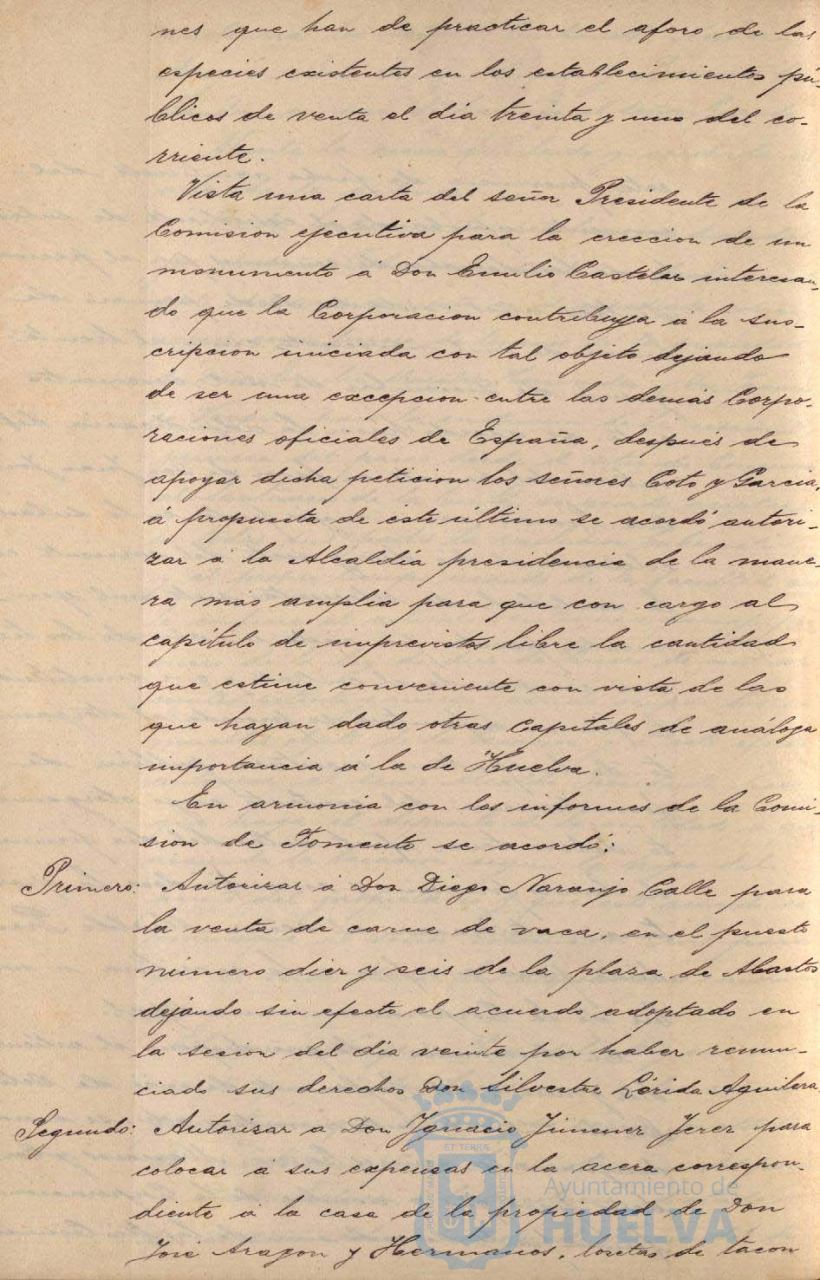 nes que han de practicar el aforo de las
especies existentes en los establecimientos pú-
blicos de venta el dia treinta y uno del co-
rriente.
Vista una carta del señor Presidente de la
Comision ejecutiva para la ereccion de un
monumento á Don Emilio Castelar interesan-
do que la Corporacion contribuya á la sus-
cripcion iniciada con tal objeto dejando
de ser una excepcion entre las demás Corpo-
raciones oficiales de España, después de
apoyar dicha peticion los señores Coto y Garcia,
á propuesta de éste último se acordó autori-
zar á la Alcaldía presidencia de la mane-
ra mas amplia para que con cargo al
capítulo de imprevistos libre la cantidad
que estime conveniente con vista de las
que hayan dado otras Capitales de análoga
importancia á la de Huelva.
En armonia con los informes de la Comi-
sion de Fomento se acordó:
Primero: Autorizar á Don Diego Naranjo Calle para
la venta de carne de vaca, en el puesto
número diez y seis de la plaza de Abastos
dejando sin efecto el acuerdo adoptado en
la sesion del dia veinte por haber renun-
ciado sus derechos Don Silvestre Lérida Aguilera.
Segundo: Autorizar a Don Ygnacio Jimenez Jerez para
colocar á sus expensas en la acera correspon-
diente á la casa de la propiedad de Don
José Aragon y Hermanos, losetas de tacon
Ayuntamiento de
HUELVA